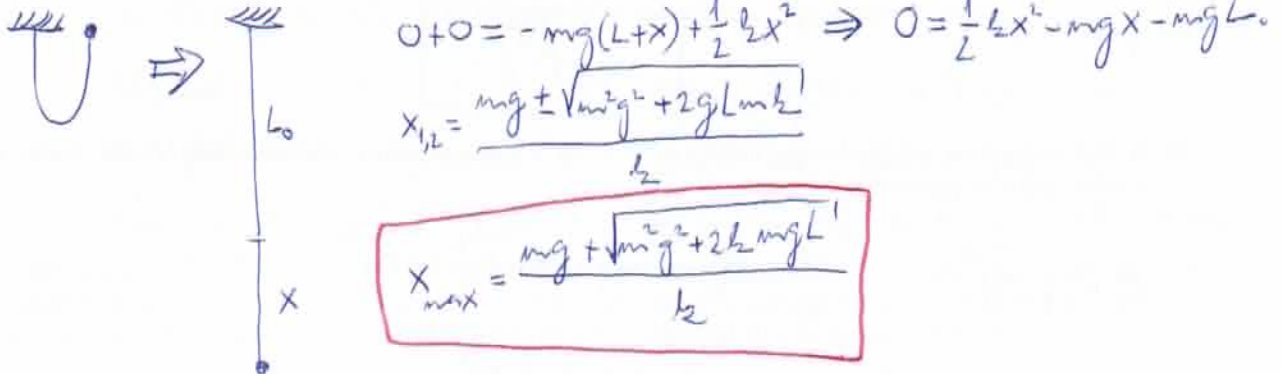 0+0 = -mg(L+x) + 1/2 kx² ⇒ 0 = 1/2 kx² - mgx - mgL.
L₀
x₁,₂ = (mg ± √(m²g² + 2gLmk)) / k
x_max = (mg + √(m²g² + 2kmgL)) / k
x